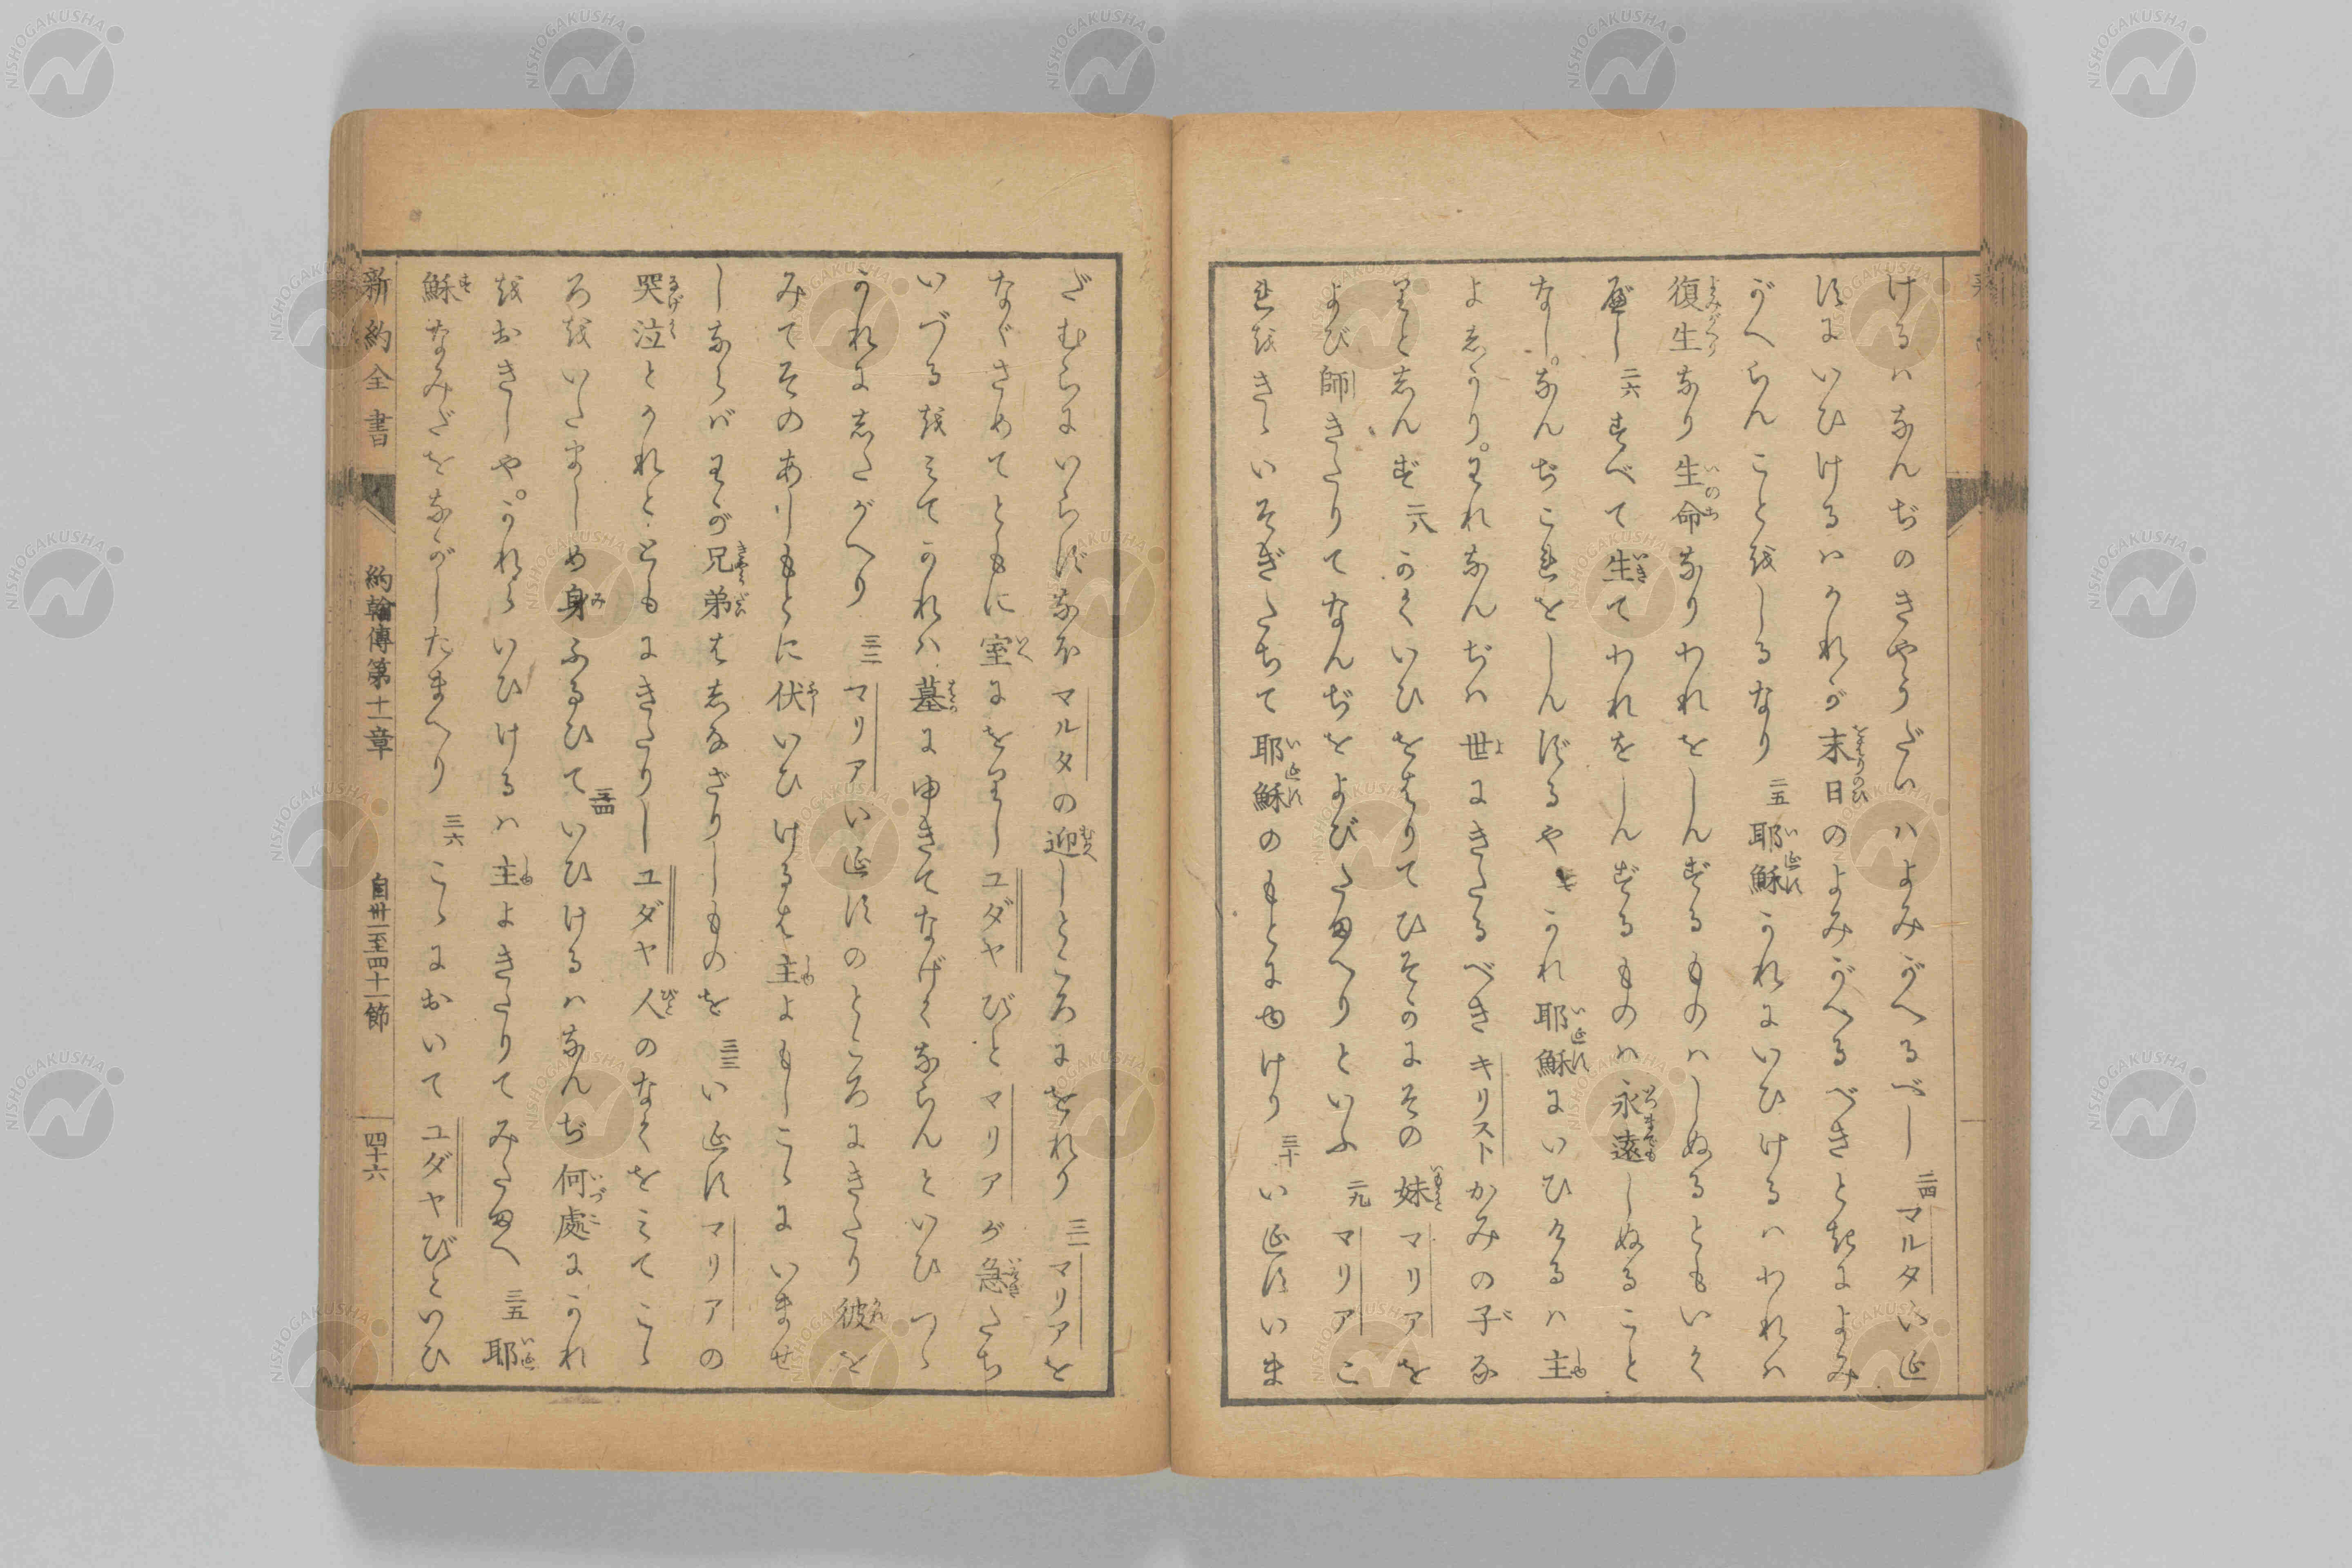 けるハなんぢのきやうだいハよみがへるべし 二四 マルタいゑ
すにいひけるハかれが末日のよみがへるべきときによみ
がへらんことをしるなり 二五 耶穌かれにいひけるハわれハ
復生なり生命なりわれをしんずるものハしぬるともいく
べし 二六 すべて生てわれをしんずるものハ永遠しぬること
なし。なんぢこれをしんずるや 二七 かれ耶穌にいひけるハ主
よしかり。われなんぢハ世にきたるべきキリストかみの子な
りとしんず 二八 かくいひをはりてひそかにその妹マリアを
よび師きたりてなんぢをよびたまへりといふ 二九 マリアこ
れをきゝいそぎたちて耶穌のもとにゆけり 三十 いゑすいま
だむらにいらずなほマルタの迎しところにをれり 三一 マリアを
なぐさめてともに室にをりしユダヤびとマリアが急たち
いづるをみてかれハ墓にゆきてなげくならんといひつゝ
かれにしたがへり 三二 マリアいゑすのところにきたり彼を
みてそのあしもとに伏いひけるは主よもしこゝにいませ
しならバわが兄弟はしなざりしものを 三三 いゑすマリアの
哭泣とかれとともにきたりしユダヤ人のなくをみてこゝ
ろをいたましめ身ふるひて 三四 いひけるハなんぢ何處にかれ
をおきしや。かれらいひけるハ主よきたりてみたまへ 三五 耶
穌なみだをながしたまへり 三六 こゝにおいてユダヤびといひ
新約全書 約翰傳第十一章 自卅一至四十一節 四十六